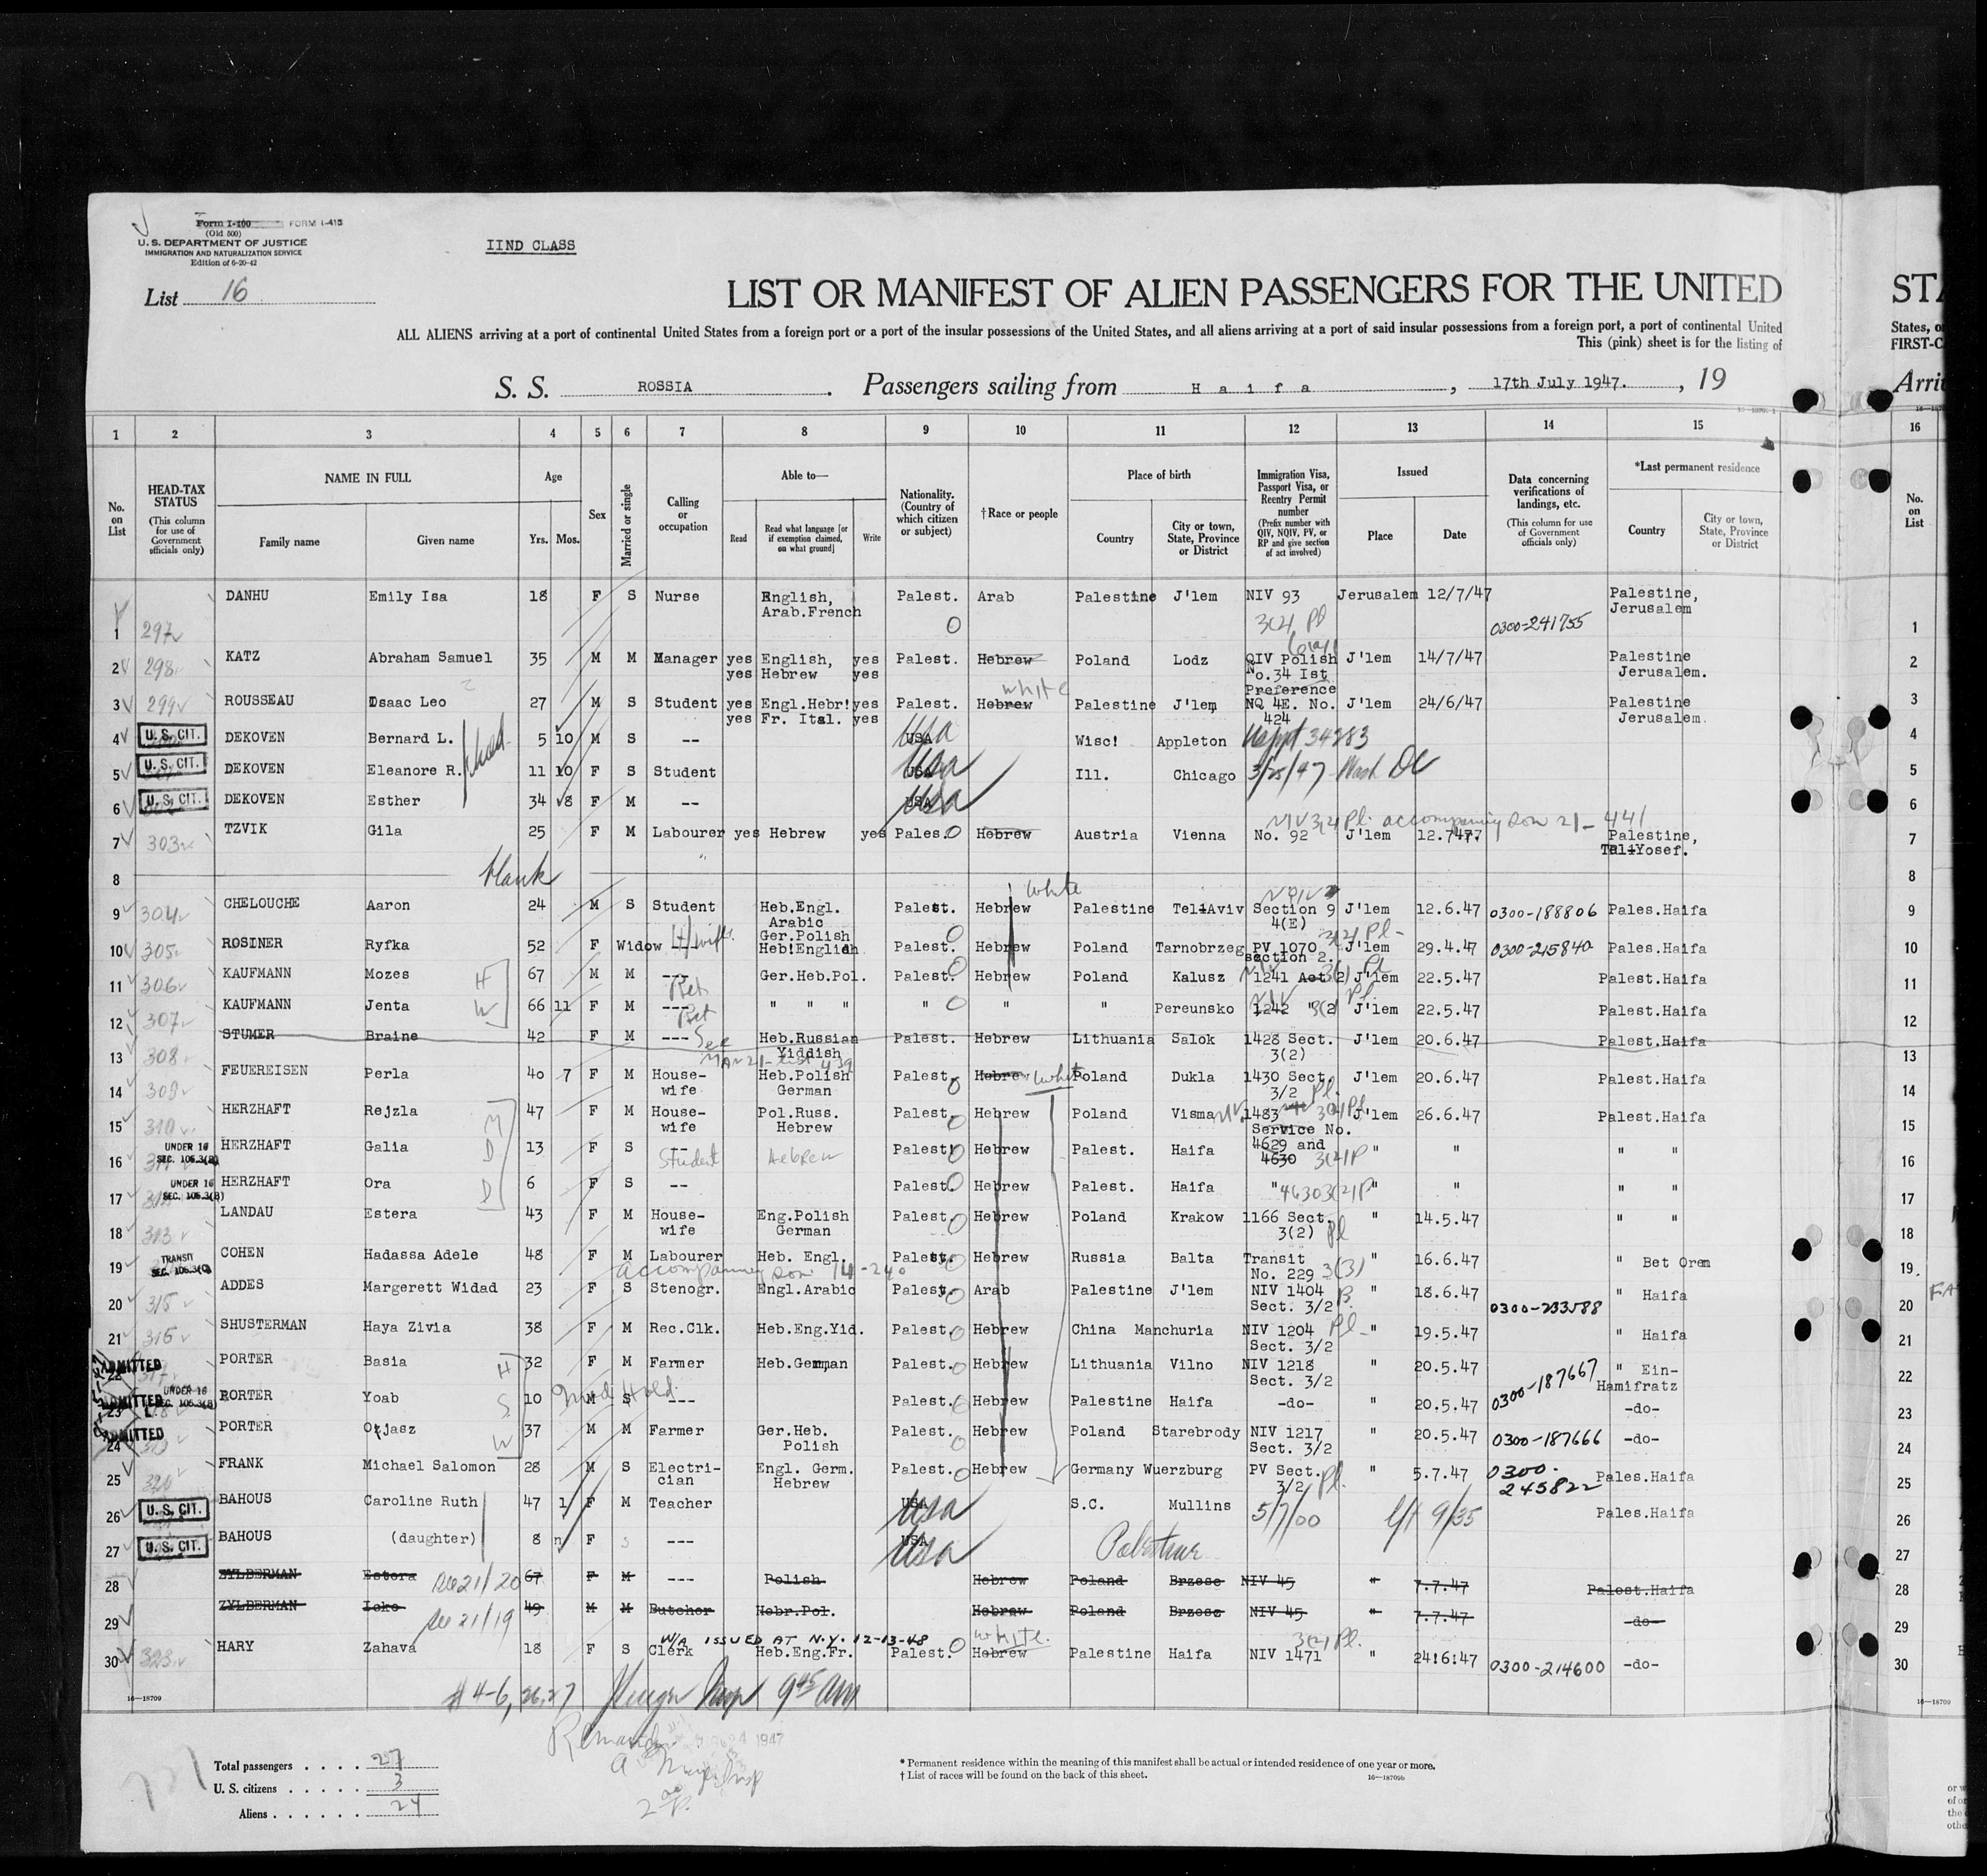 Form I-100 FORM I-415
(Old 500)
U. S. DEPARTMENT OF JUSTICE
IMMIGRATION AND NATURALIZATION SERVICE
Edition of 6-20-42
IIND CLASS
List 16
LIST OR MANIFEST OF ALIEN PASSENGERS FOR THE UNITED
ALL ALIENS arriving at a port of continental United States from a foreign port or a port of the insular possessions of the United States, and all aliens arriving at a port of said insular possessions from a foreign port, a port of continental United
This (pink) sheet is for the listing of
S. S. ROSSIA. Passengers sailing from Haifa, 17th July 1947., 19
1 2 3 4 5 6 7 8 9 10 11 12 13 14 15 16
No. on List
HEAD-TAX STATUS (This column for use of Government officials only)
NAME IN FULL Family name Given name
Age Yrs. Mos.
Sex
Married or single
Calling or occupation
Able to— Read Read what language [or if exemption claimed, on what ground] Write
Nationality. (Country of which citizen or subject)
†Race or people
Place of birth Country City or town, State, Province or District
Immigration Visa, Passport Visa, or Reentry Permit number (Prefix number with QIV, NQIV, PV, or RP and give section of act involved)
Issued Place Date
Data concerning verifications of landings, etc. (This column for use of Government officials only)
*Last permanent residence Country City or town, State, Province or District
No. on List
1 297 DANHU Emily Isa 18 F S Nurse English, Arab.French Palest. Arab Palestine J'lem NIV 93 3(2) Pl Jerusalem 12/7/47 0300-241755 Palestine, Jerusalem 1
2 298 KATZ Abraham Samuel 35 M M Manager yes English, yes yes Hebrew yes Palest. Hebrew Poland Lodz QIV Polish No.34 Ist Preference J'lem 14/7/47 Palestine Jerusalem. 2
3 299 ROUSSEAU Isaac Leo 27 M S Student yes Engl.Hebr! yes yes Fr. Ital. yes Palest. Hebrew white Palestine J'lem NQ 4E. No. 424 J'lem 24/6/47 Palestine Jerusalem. 3
4 U. S. CIT. DEKOVEN Bernard L. 5 10 M S -- USA Wisc! Appleton 34283 4
5 U. S. CIT. DEKOVEN Eleanore R. 11 10 F S Student USA Ill. Chicago 3/25/47 Wash DC 5
6 U. S. CIT. DEKOVEN Esther 34 8 F M -- USA 6
NIV 3(2) Pl. accompanying son 21-441
7 303 TZVIK Gila 25 F M Labourer yes Hebrew yes Pales. Hebrew Austria Vienna No. 92 J'lem 12.7.47 Palestine, Tel-Yosef. 7
8 blank 8
9 304 CHELOUCHE Aaron 24 M S Student Heb.Engl. Arabic Palest. Hebrew white Palestine Tel-Aviv Section 4(E) J'lem 12.6.47 0300-188806 Pales.Haifa 9
10 305 ROSINER Ryfka 52 F Widow H/wife Ger.Polish Heb!English Palest. Hebrew Poland Tarnobrzeg PV 1070 section 2. 3(2) Pl- J'lem 29.4.47 0300-215840 Pales.Haifa 10
11 306 KAUFMANN Mozes H 67 M M --- Ret Ger.Heb.Pol. Palest. Hebrew Poland Kalusz 1241 J'lem 22.5.47 Palest.Haifa 11
12 307 KAUFMANN Jenta W 66 11 F M --- Ret " " " " " " Pereunsko 1242 3(2) Pl. J'lem 22.5.47 Palest.Haifa 12
13 308 STUMER Braine 42 F M --- Heb.Russian Yiddish Palest. Hebrew Lithuania Salok 1428 Sect. 3(2) J'lem 20.6.47 Palest.Haifa 13
14 309 FEUEREISEN Perla 40 7 F M House-wife Heb.Polish German Palest. Hebrew white Poland Dukla 1430 Sect. 3/2 Pl. J'lem 20.6.47 Palest.Haifa 14
15 310 HERZHAFT Rejzla M 47 F M House-wife Pol.Russ. Hebrew Palest. Hebrew Poland Visma 1483 3(2) Pl Service No. J'lem 26.6.47 Palest.Haifa 15
16 UNDER 16 SEC. 105.3(B) HERZHAFT Galia D 13 F S -- Student Hebrew Palest Hebrew Palest. Haifa 4629 and 4630 3(2) P " " " " 16
17 UNDER 16 SEC. 105.3(B) HERZHAFT Ora D 6 F S -- Palest. Hebrew Palest. Haifa " 4630 3(2) P " " " " 17
18 313 LANDAU Estera 43 F M House-wife Eng.Polish German Palest. Hebrew Poland Krakow 1166 Sect. 3(2) Pl " 14.5.47 " " 18
19 TRANSIT SEC. 105.3(C) COHEN Hadassa Adele 48 F M Labourer Heb. Engl. Palest. Hebrew Russia Balta Transit No. 229 3(3) " 16.6.47 " Bet Oren 19
accompanying son 14-240
20 315 ADDES Margerett Widad 23 F S Stenogr. Engl.Arabic Palest. Arab Palestine J'lem NIV 1404 Sect. 3/2 " 18.6.47 0300-233588 " Haifa 20
21 316 SHUSTERMAN Haya Zivia 38 F M Rec.Clk. Heb.Eng.Yid. Palest. Hebrew China Manchuria NIV 1204 Sect. 3/2 Pl- " 19.5.47 " Haifa 21
22 ADMITTED PORTER Basia 32 F M Farmer Heb.German Palest. Hebrew Lithuania Vilno NIV 1218 Sect. 3/2 " 20.5.47 0300-187667 " Ein-Hamifratz 22
23 ADMITTED UNDER 16 SEC. 105.3(B) PORTER Yoab S 10 M S --- Palest. Hebrew Palestine Haifa -do- " 20.5.47 -do- 23
24 ADMITTED PORTER Ojasz W 37 M M Farmer Ger.Heb. Polish Palest. Hebrew Poland Starebrody NIV 1217 Sect. 3/2 " 20.5.47 0300-187666 -do- 24
25 320 FRANK Michael Salomon 28 M S Electri-cian Engl. Germ. Hebrew Palest. Hebrew Germany Wuerzburg PV Sect. 3/2 Pl. " 5.7.47 0300-245822 Pales.Haifa 25
26 U. S. CIT. BAHOUS Caroline Ruth 47 1 F M Teacher USA S.C. Mullins 5/7/00 9/35 Pales.Haifa 26
27 U. S. CIT. BAHOUS (daughter) 8 F S --- USA Palestine 27
28 ZYLBERMAN Estera See 21/20 67 F M --- Polish Hebrew Poland Brzesc NIV 45 " 7.7.47 Palest.Haifa 28
29 ZYLBERMAN Icko See 21/19 49 M M Butcher Hebr.Pol. Hebrew Poland Brzesc NIV 45 " 7.7.47 -do- 29
W/A ISSUED AT N.Y. 12-13-48
30 323 HARY Zahava 18 F S Clerk Heb.Eng.Fr. Palest. Hebrew white. Palestine Haifa NIV 1471 3(2) Pl. " 24.6.47 0300-214600 -do- 30
16—18709
# 4-6, 26, 27 9 45 AM
Total passengers . . . . 27
U. S. citizens . . . . . 3
Aliens . . . . . . 24
* Permanent residence within the meaning of this manifest shall be actual or intended residence of one year or more.
† List of races will be found on the back of this sheet. 16—18709b
STA
States, o
FIRST-C
Arri
16—18709